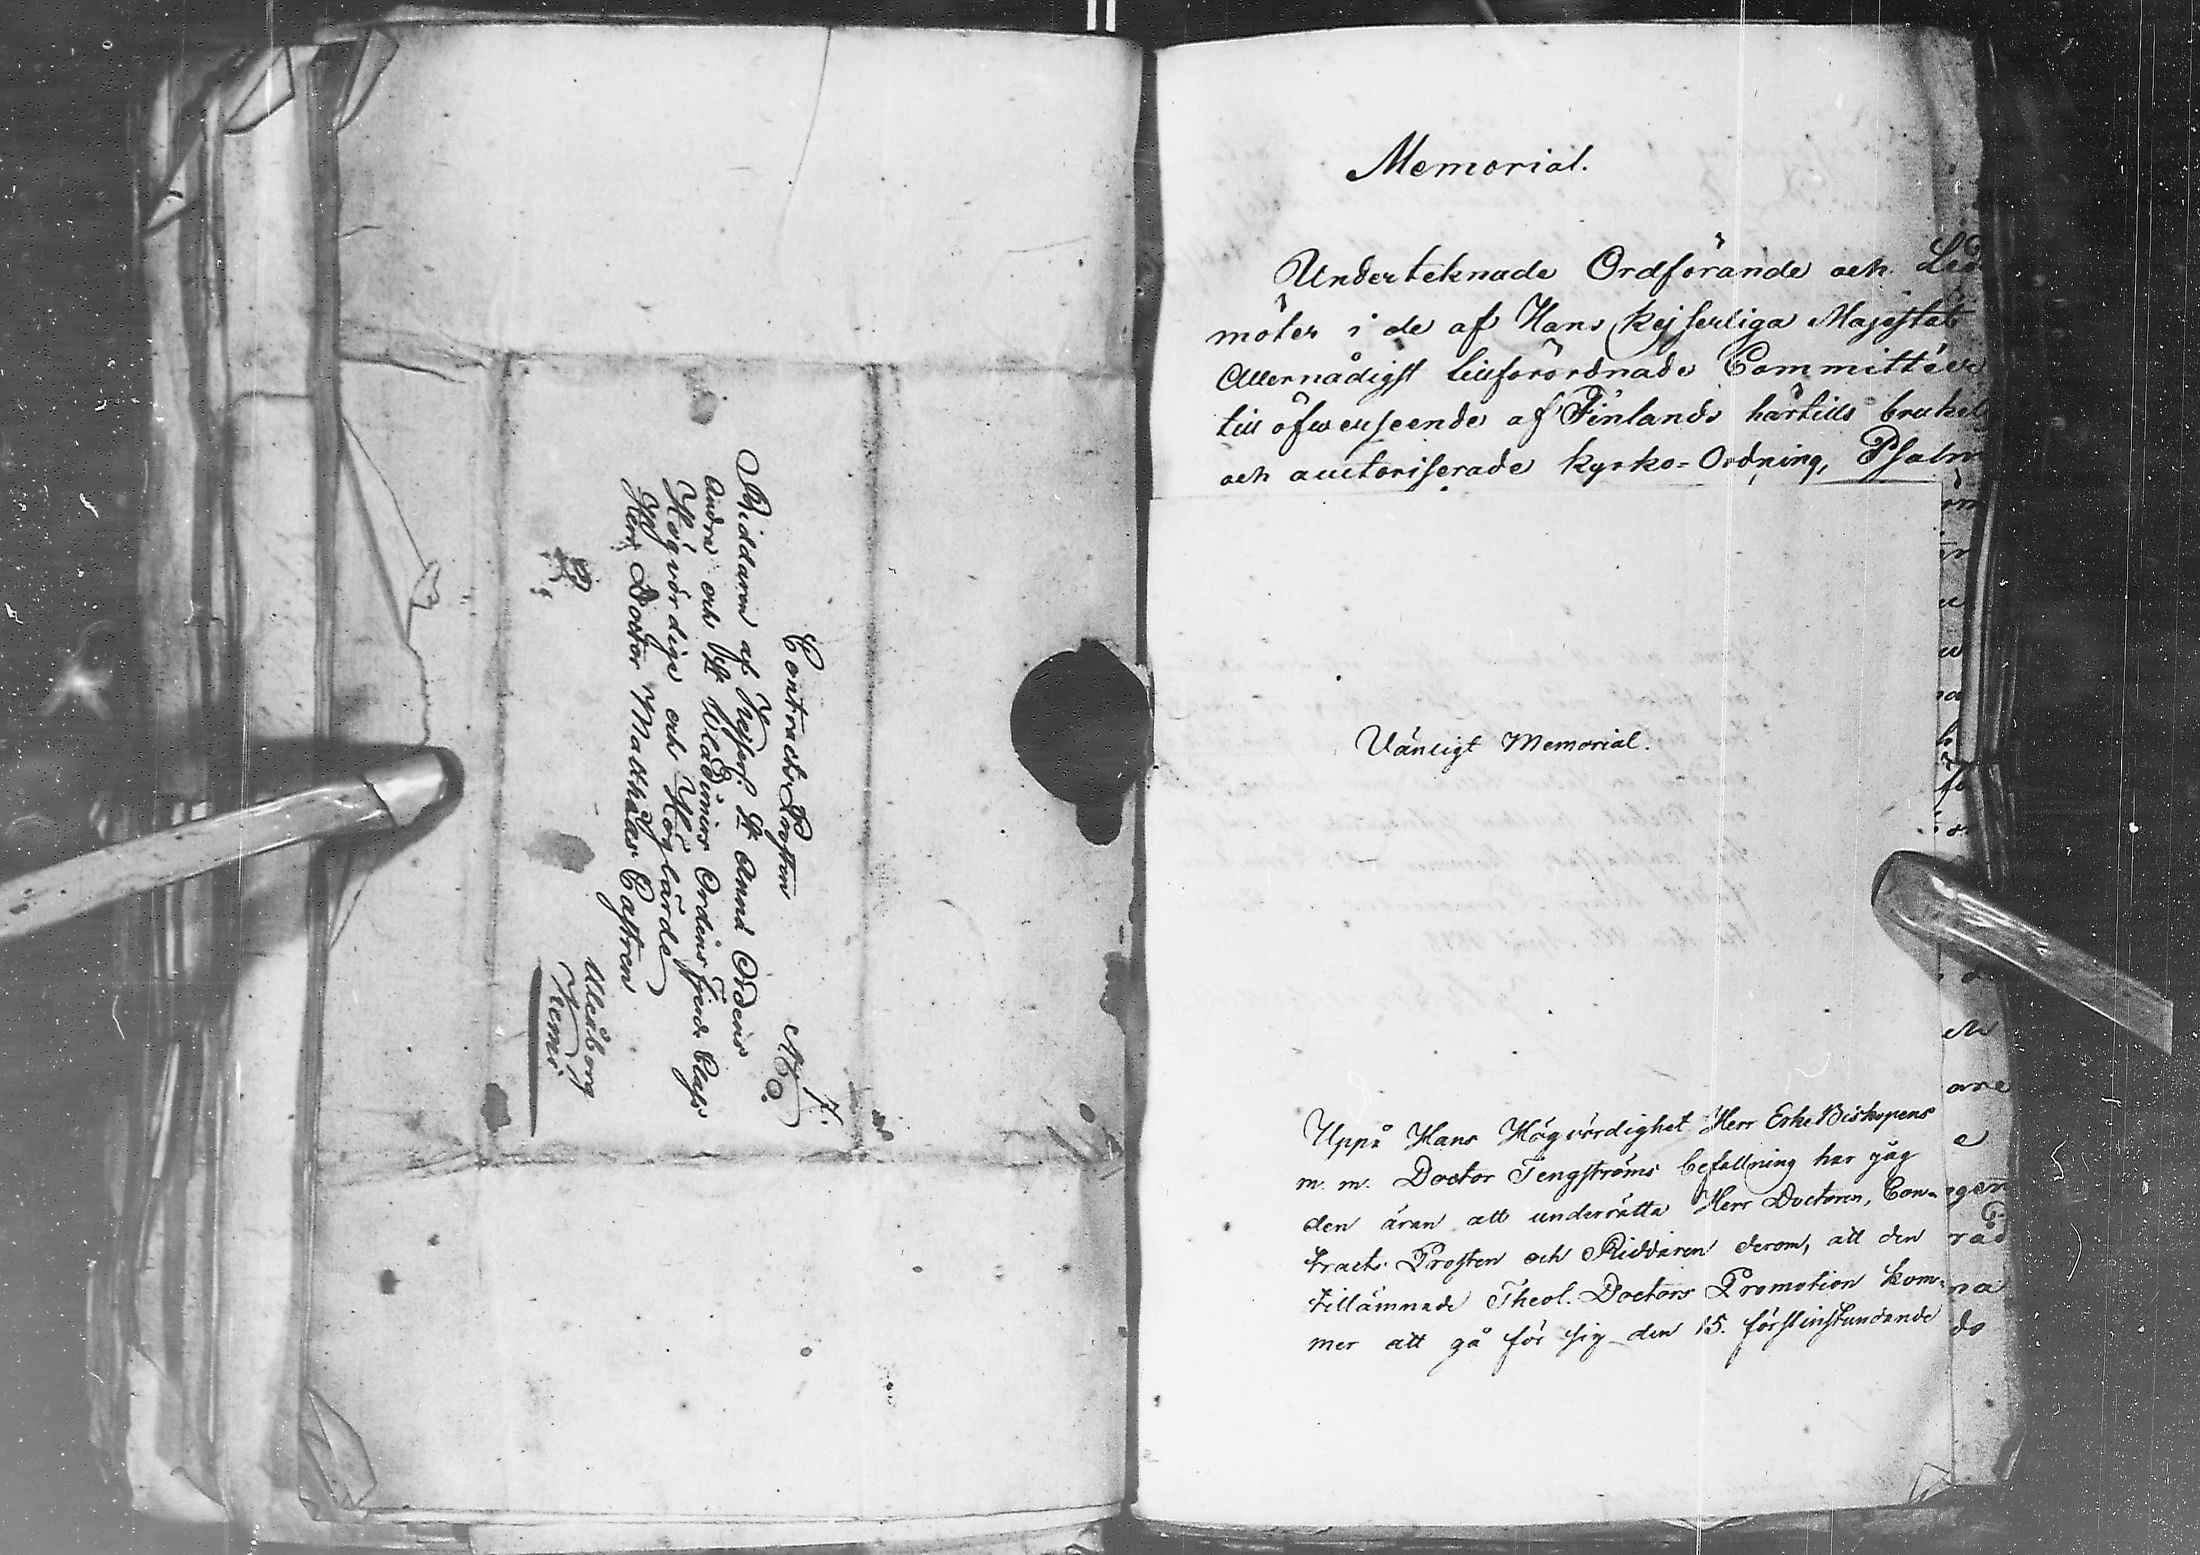 Contracts Prosten
Riddaren af Kejserl. St Annæ Ordens
Andra och St Wladimirs Ordens fjerde Classe
Högvördige och Höglärde
Herr Doctor Matthias Castren
Uleåborg
Kemi
Memorial.
Underteknade Ordförande och Led
möter i de af Hans Kejserliga Majestät
Allernådigst tillförordnade Committéer
till öfwerseende af Finlands härtills brukel
och auctoriserade Kyrko-Ordning, Psalm
Vänligt Memorial.
Uppå Hans Högvördighet Herr ErkeBiskopens
m. m. Doctor Tengströms befallning har jag
den äran att underrätta Herr Doctoren, Con-
tracts Prosten och Riddaren derom, att den
tillämnade Theol. Doctors Promotion kom-
mer att gå för sig den 15. förstinstundande